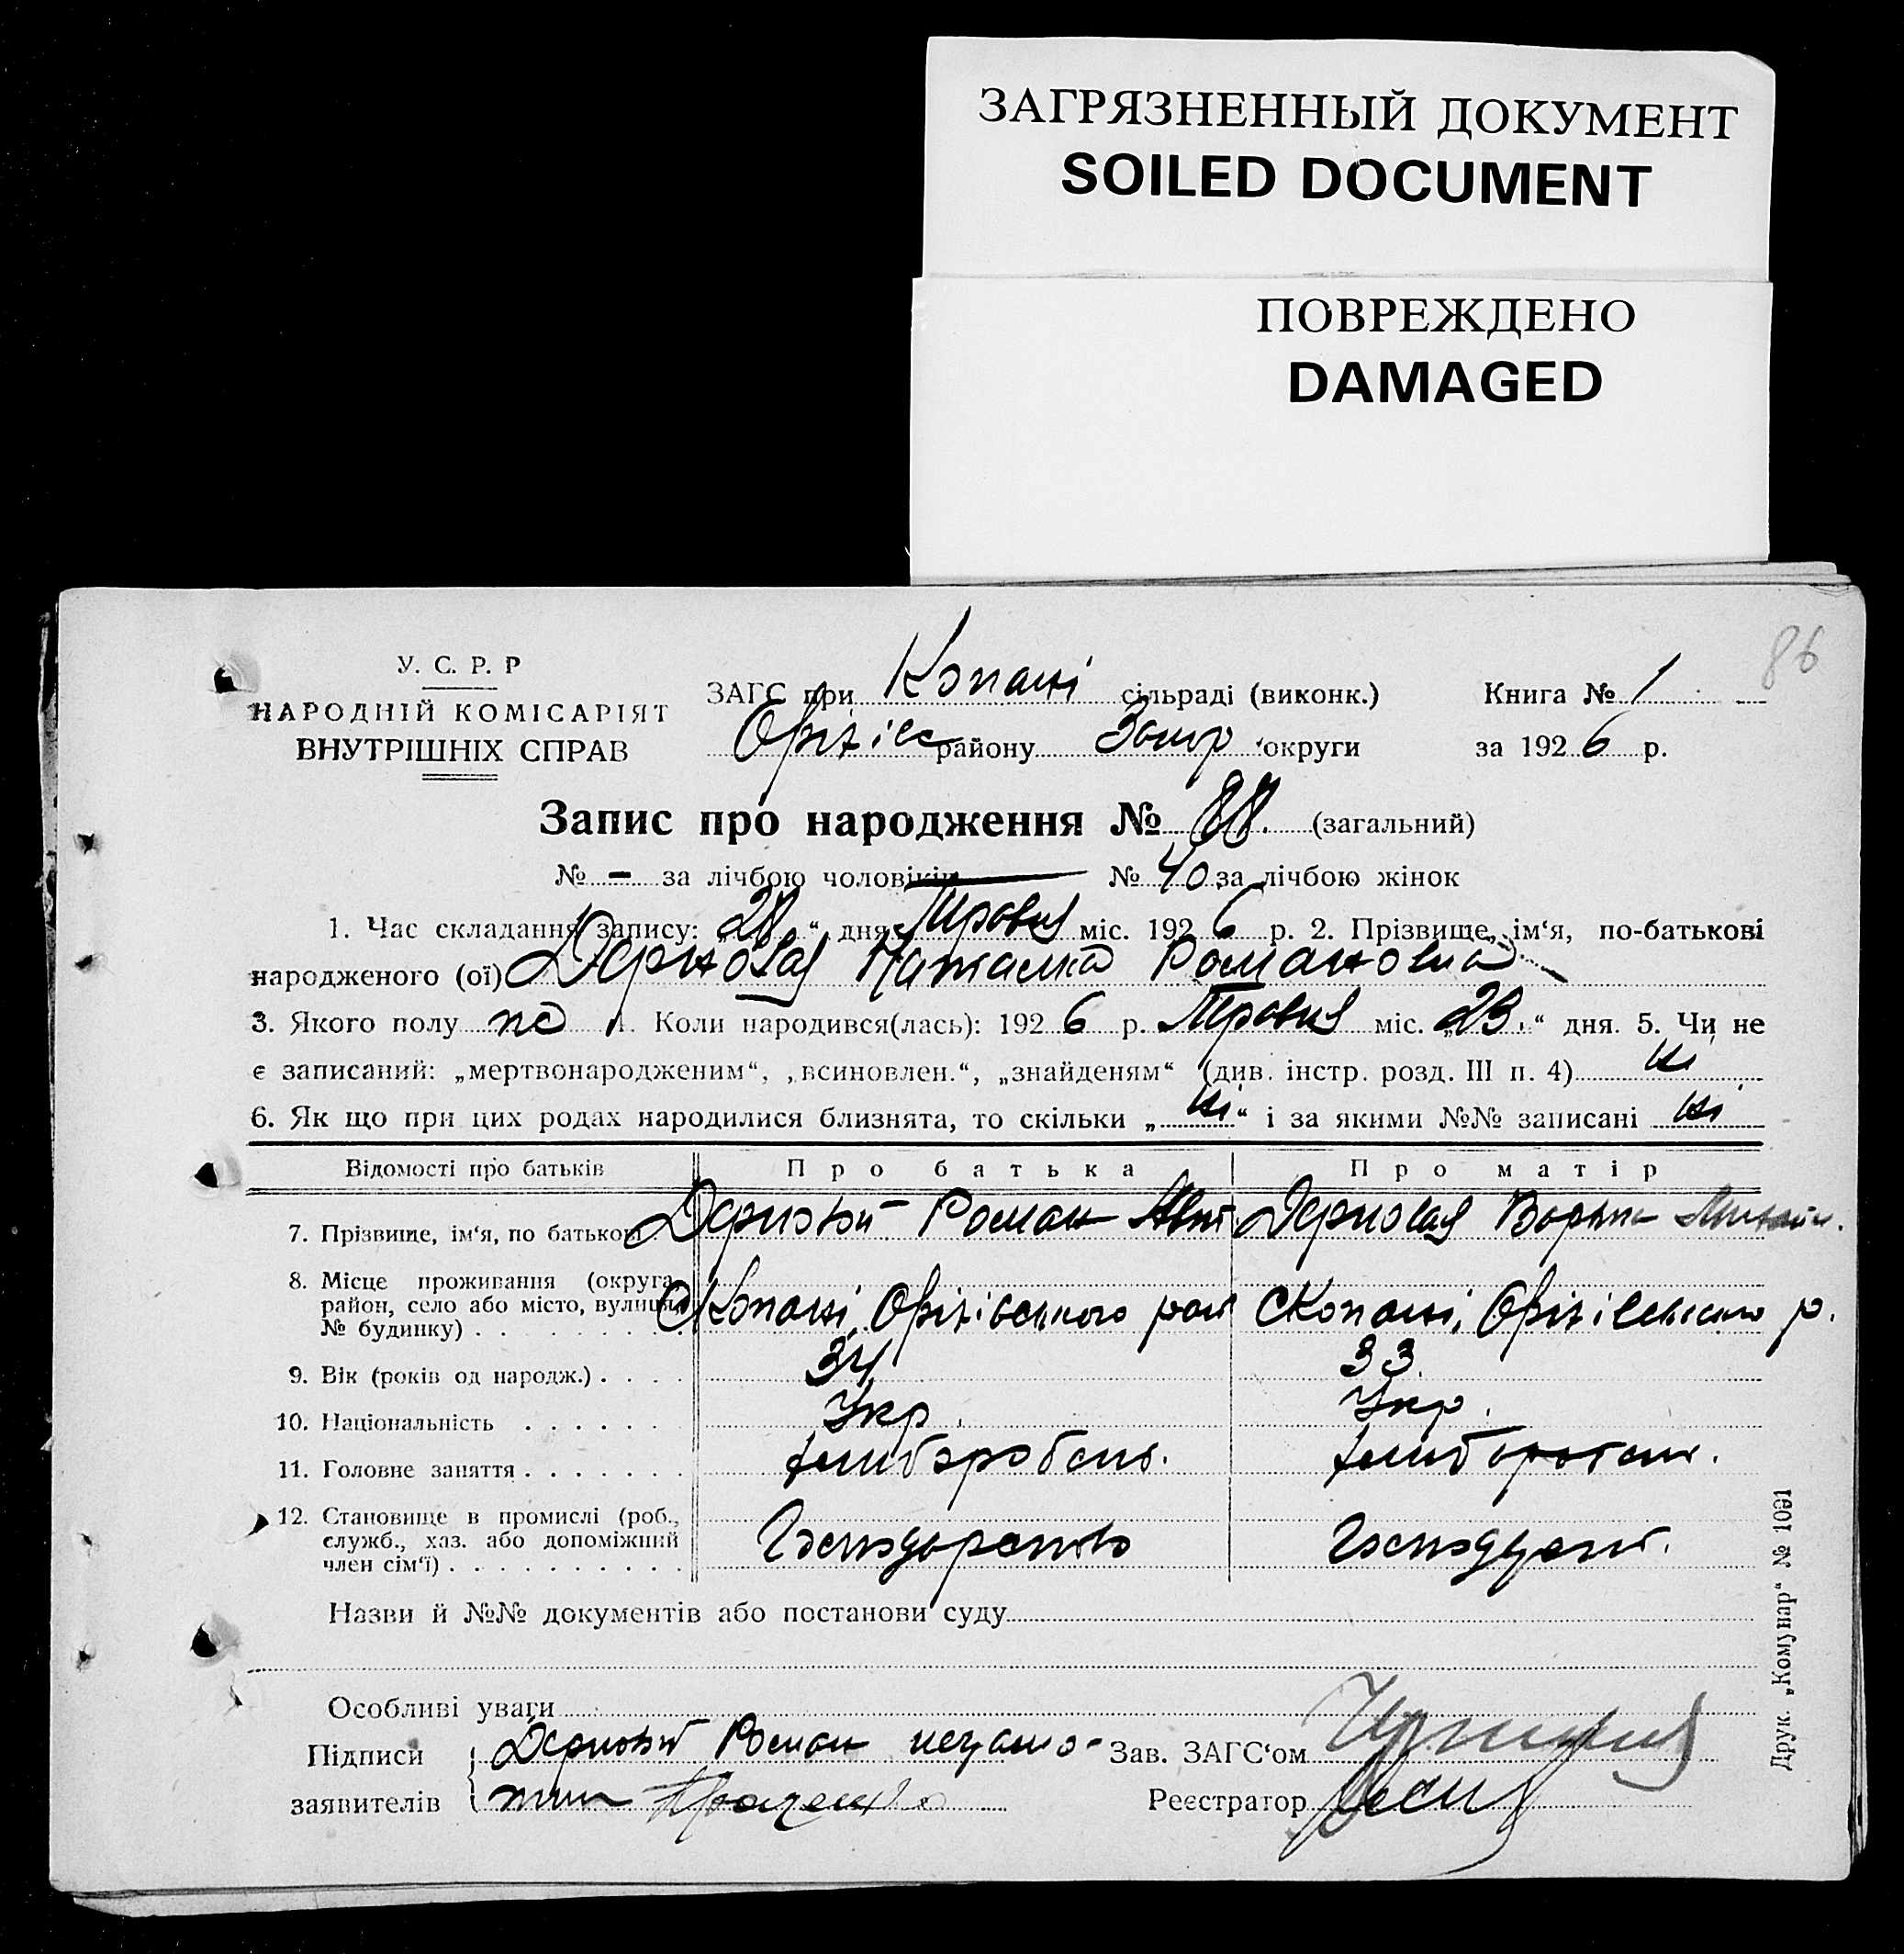 ЗАГРЯЗНЕННЫЙ ДОКУМЕНТ
SOILED DOCUMENT
ПОВРЕЖДЕНО
DAMAGED
86
У. С. Р. Р
НАРОДНІЙ КОМІСАРІЯТ
ВНУТРІШНІХ СПРАВ
ЗАГС при Копані сільраді (виконк.) Книга № 1
Оріхівс району Запор округи за 1926 р.
Запис про народження № 88. (загальний)
№ – за лічбою чоловіків № 40 за лічбою жінок
1. Час складання запису: „28“ дня Травня міс. 1926 р. 2. Прізвище, ім‘я, по-батькові
народженого (ої) Дерновая Наталка Романовна
3. Якого полу Коли народився(лась): 1926 р. Травня міс. „23.“ дня. 5. Чи не
є записаний: „мертвонародженим“, „всиновлен.“, „знайденям“ (див. інстр. розд. III п. 4) ні
6. Як що при цих родах народилися близнята, то скільки „ні“ і за якими №№ записані ні
Відомості про батьків Про батька Про матір
7. Прізвище, ім‘я, по батькові Дерновий Роман Дерновая
8. Місце проживання (округа, район, село або місто, вулиця, № будинку) С Копані, Оріхівського рай С Копані, Оріхівського р.
9. Вік (років од народж.) 34 33
10. Національність Укр. Укр.
11. Головне заняття хлибороб
12. Становище в промислі (роб., служб., хаз. або допоміжний член сім‘ї) Господарство
Назви й №№ документів або постанови суду
Особливі уваги
Підписи Дерновий Роман неграмо- Зав. ЗАГС‘ом
заявителів тни Реєстратор
Друк. „Комунар“ № 1091